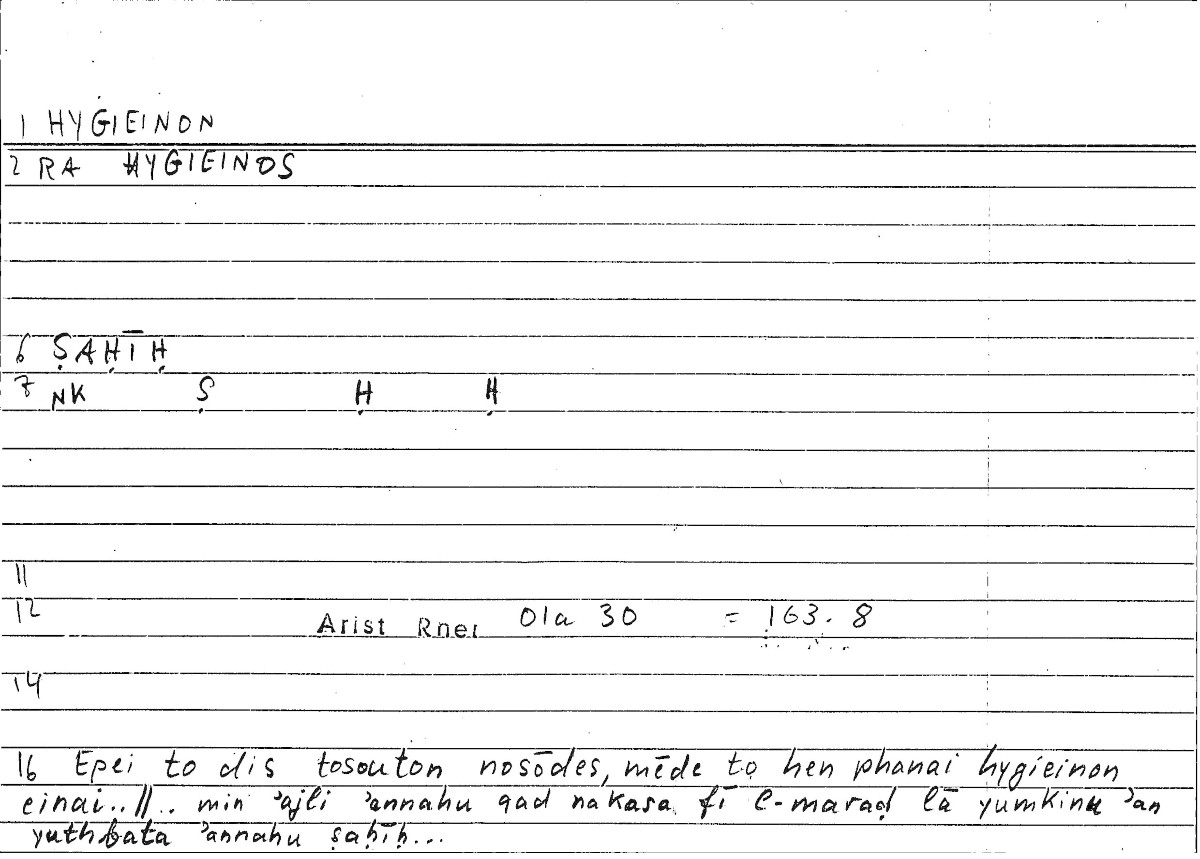 1 HYGIEINON
2 RA HYGIEINOS
6 ṢAḤĪḤ
7 NK Ṣ Ḥ Ḥ
11
12 Arist Rner 01a 30 = 163.8
14
16 Epei to dis tosouton nosōdes, mēde to hen phanai hygieinon
einai..//.. min ʾajli ʾannahu qad nakasa fī l-maraḍ lā yumkinu ʾan
yuthbata ʾannahu ṣaḥīḥ...